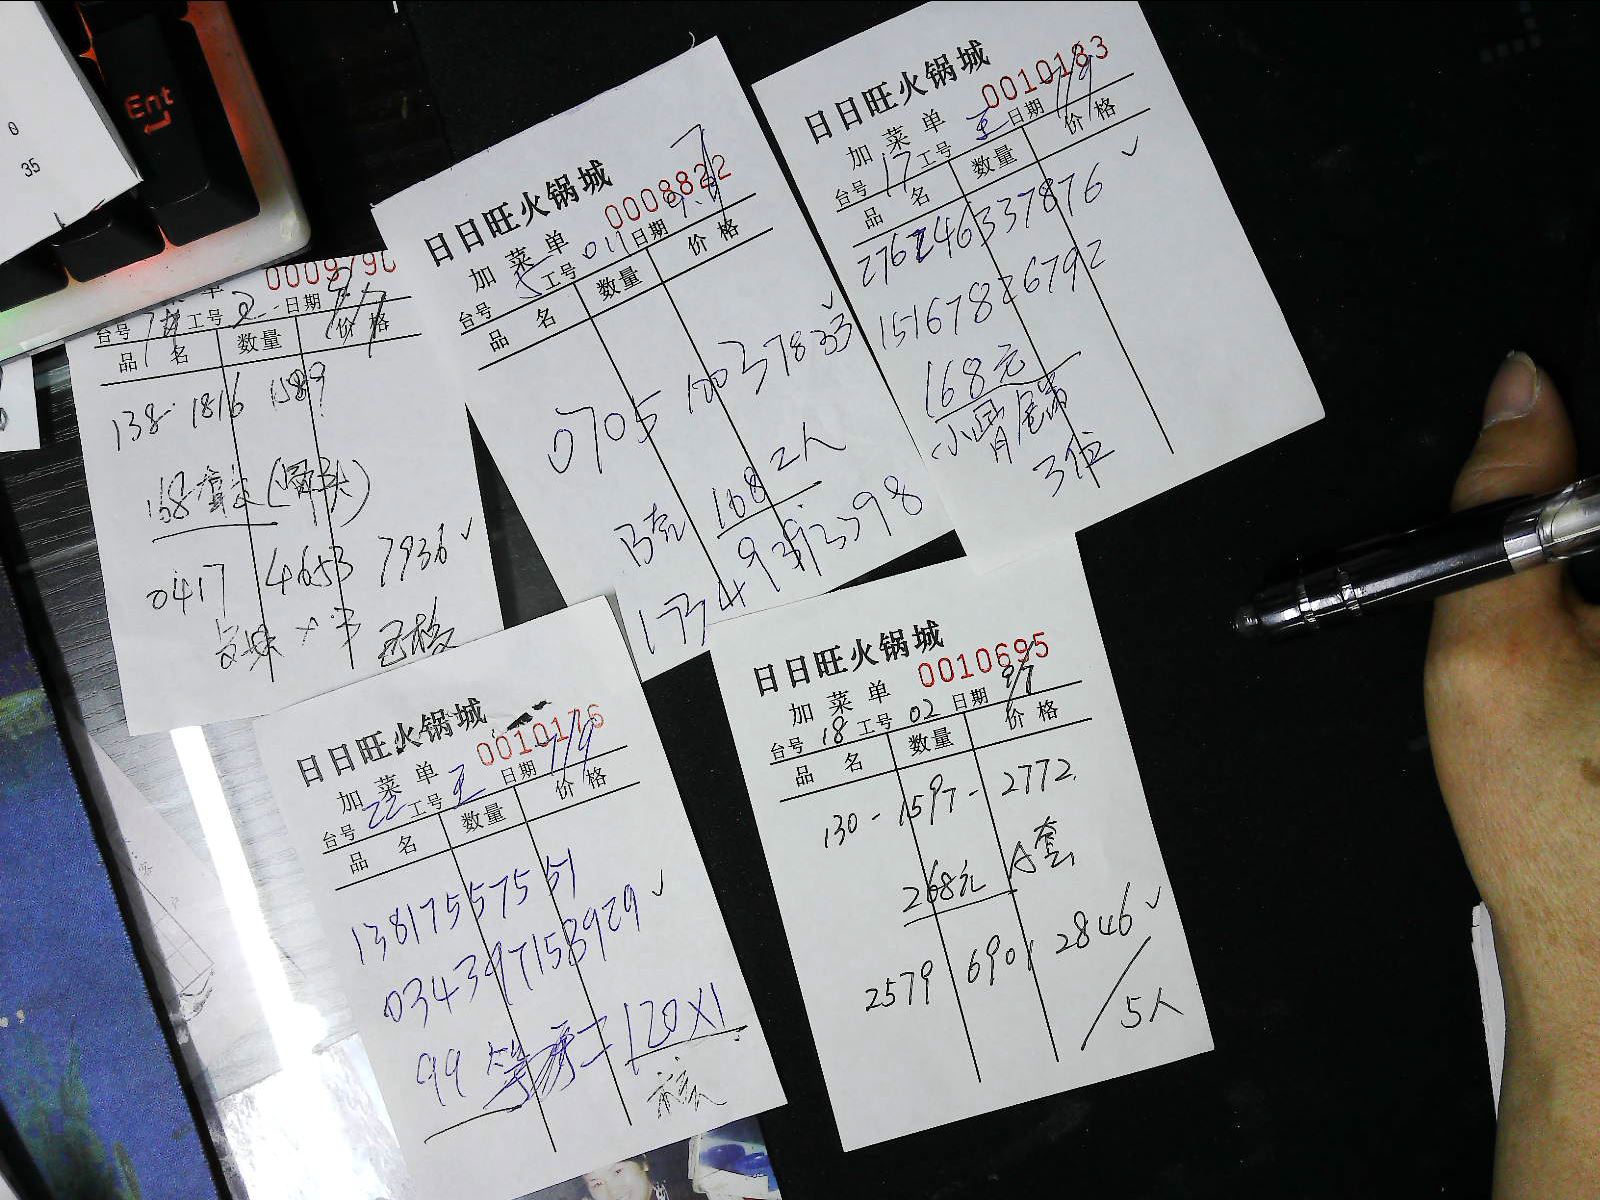 Ent
0
35
0009790
台号 工号 日期
品 名 数量 价 格
138- 1816 1589
168套
0417 4653 7936 ✓
日日旺火锅城
0008822
加 菜 单
台号 5 工号 011 日期
品 名 数量 价 格
0705 100 37833 ✓
168 2人
1734 9393398
日日旺火锅城
0010183
加 菜 单
台号 17 工号 王 日期 7/9
品 名 数量 价 格
276246337876 ✓
151678 26792
168元
小骨
3位
日日旺火锅城
0010176
加 菜 单
台号 22 工号 王 日期 7/9
品 名 数量 价 格
13817557551
034397158929 ✓
99 120X1
日日旺火锅城
0010695
加 菜 单
台号 18 工号 02 日期 9/7
品 名 数量 价 格
130 - 1597 - 2772
268元 A套
2579 6901 2846 ✓
5人